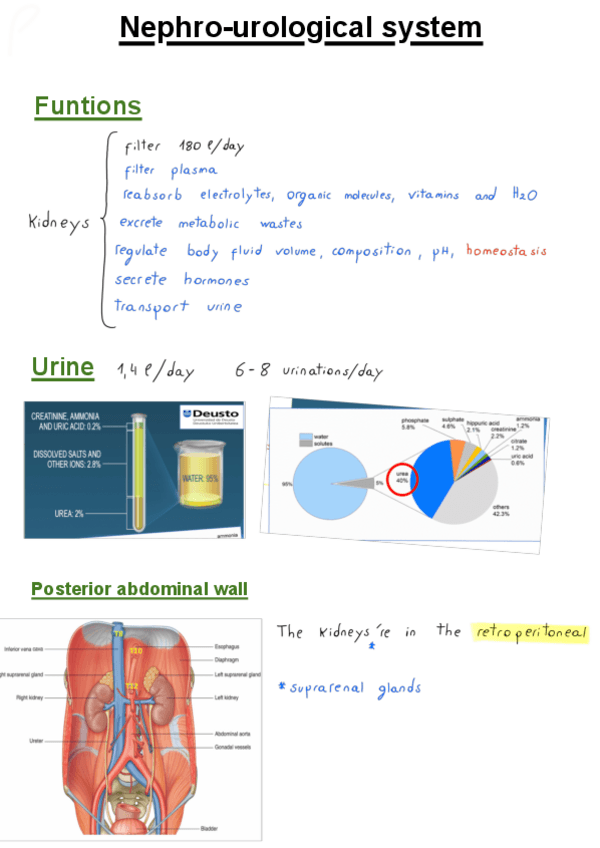 Nephro-urological system
Funtions
Kidneys
filter 180 l/day
filter plasma
reabsorb electrolytes, organic molecules, vitamins and H2O
excrete metabolic wastes
regulate body fluid volume, composition, pH, homeostasis
secrete hormones
transport urine
Urine 1,4 l/day 6-8 urinations/day
CREATININE, AMMONIA
AND URIC ACID: 0.2%
DISSOLVED SALTS AND
OTHER IONS: 2.8%
UREA: 2%
Deusto
WATER: 95%
ammonia
water
solutes
95%
5%
urea
40%
phosphate
5.8%
sulphate
4.6%
hippuric acid
2.1%
creatinine
2.2%
ammonia
1.2%
citrate
1.2%
uric acid
0.8%
others
42.3%
Posterior abdominal wall
Inferior vena cava
ht suprarenal gland
Right kidney
Ureter
T8
T10
T12
Esophagus
Diaphragm
Left suprarenal gland
Left kidney
Abdominal aorta
Gonadal vessels
Bladder
The kidneys're in the retroperitoneal
*
* suprarenal glands